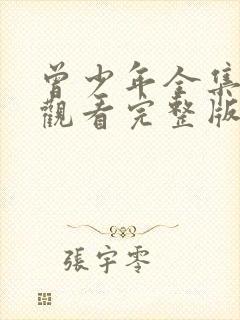 曾少年全集
觀看完整版
張宇零